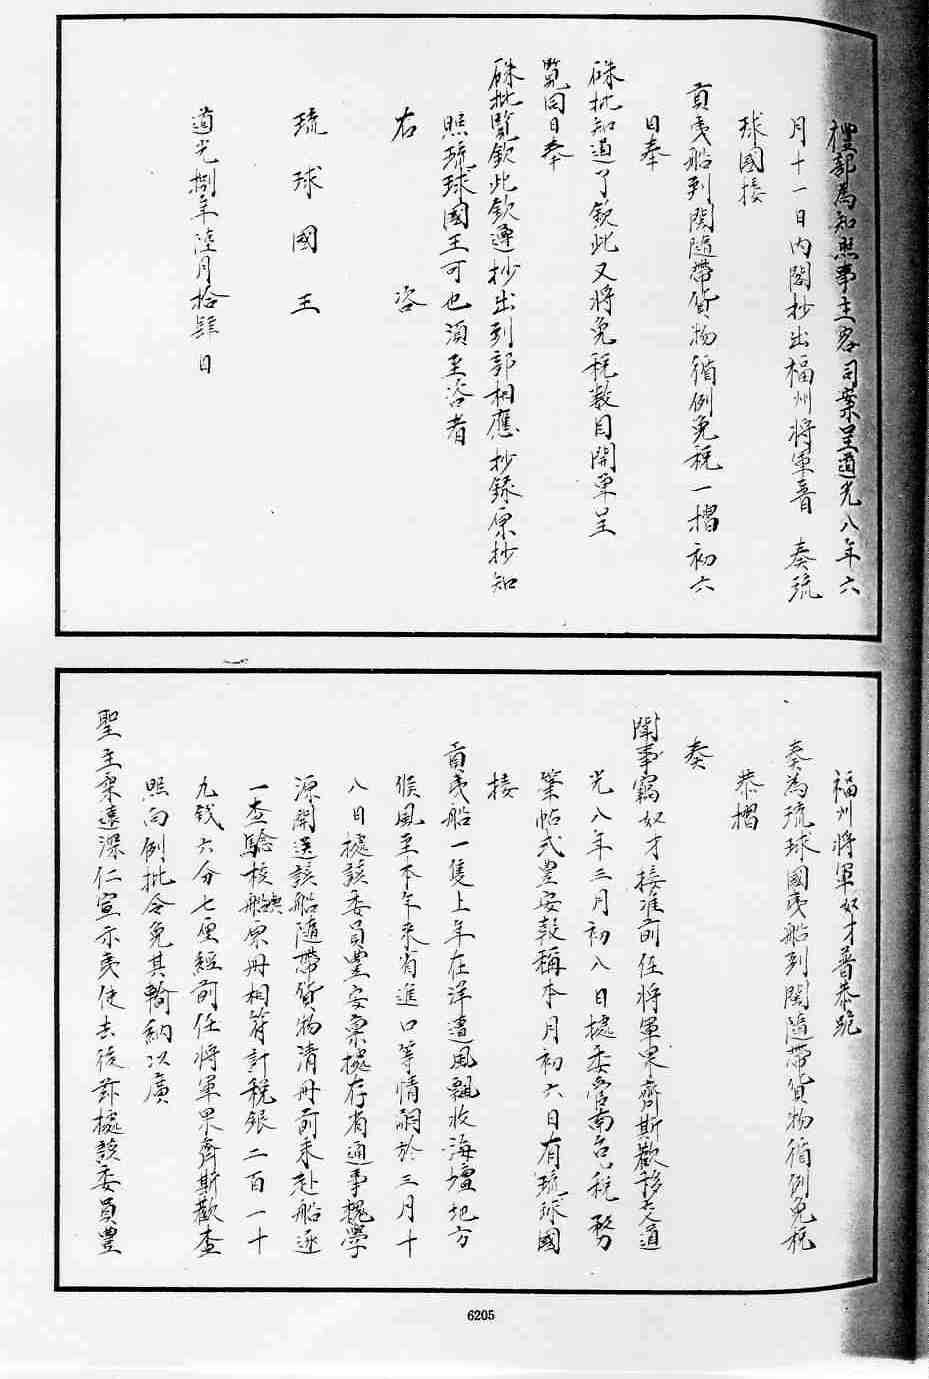 禮部為知照事主客司案呈道光八年六
月十一日內閣抄出福州將軍普　奏琉
球國接
貢夷船到關隨帶貨物循例免稅一摺初六
日奉
硃批知道了欽此又將免稅數目開單呈
覽同日奉
硃批覽欽此欽遵抄出到部相應抄錄原抄知
照琉球國王可也須至咨者
右　咨
琉球國王
道光捌年陸月拾肆日
福州將軍奴才普恭跪
奏為琉球國夷船到關隨帶貨物循例免稅
恭摺
奏
聞事竊奴才接准前任將軍果齊斯歡移交道
光八年三月初八日據委管南台稅務
筆帖式豐安報稱本月初六日有琉球國
接
貢夷船一隻上年在洋遭風飄收海壇地方
候風至本年來省進口等情嗣於三月十
八日據該委員豐安稟據存省通事魏學
源開送該船隨帶貨物清冊前來赴船逐
一查驗核與原冊相符計稅銀二百一十
九錢六分七厘經前任將軍果齊斯歡查
照向例批令免其輸納以廣
聖主柔遠深仁宣示夷使去後茲據該委員豐
6205